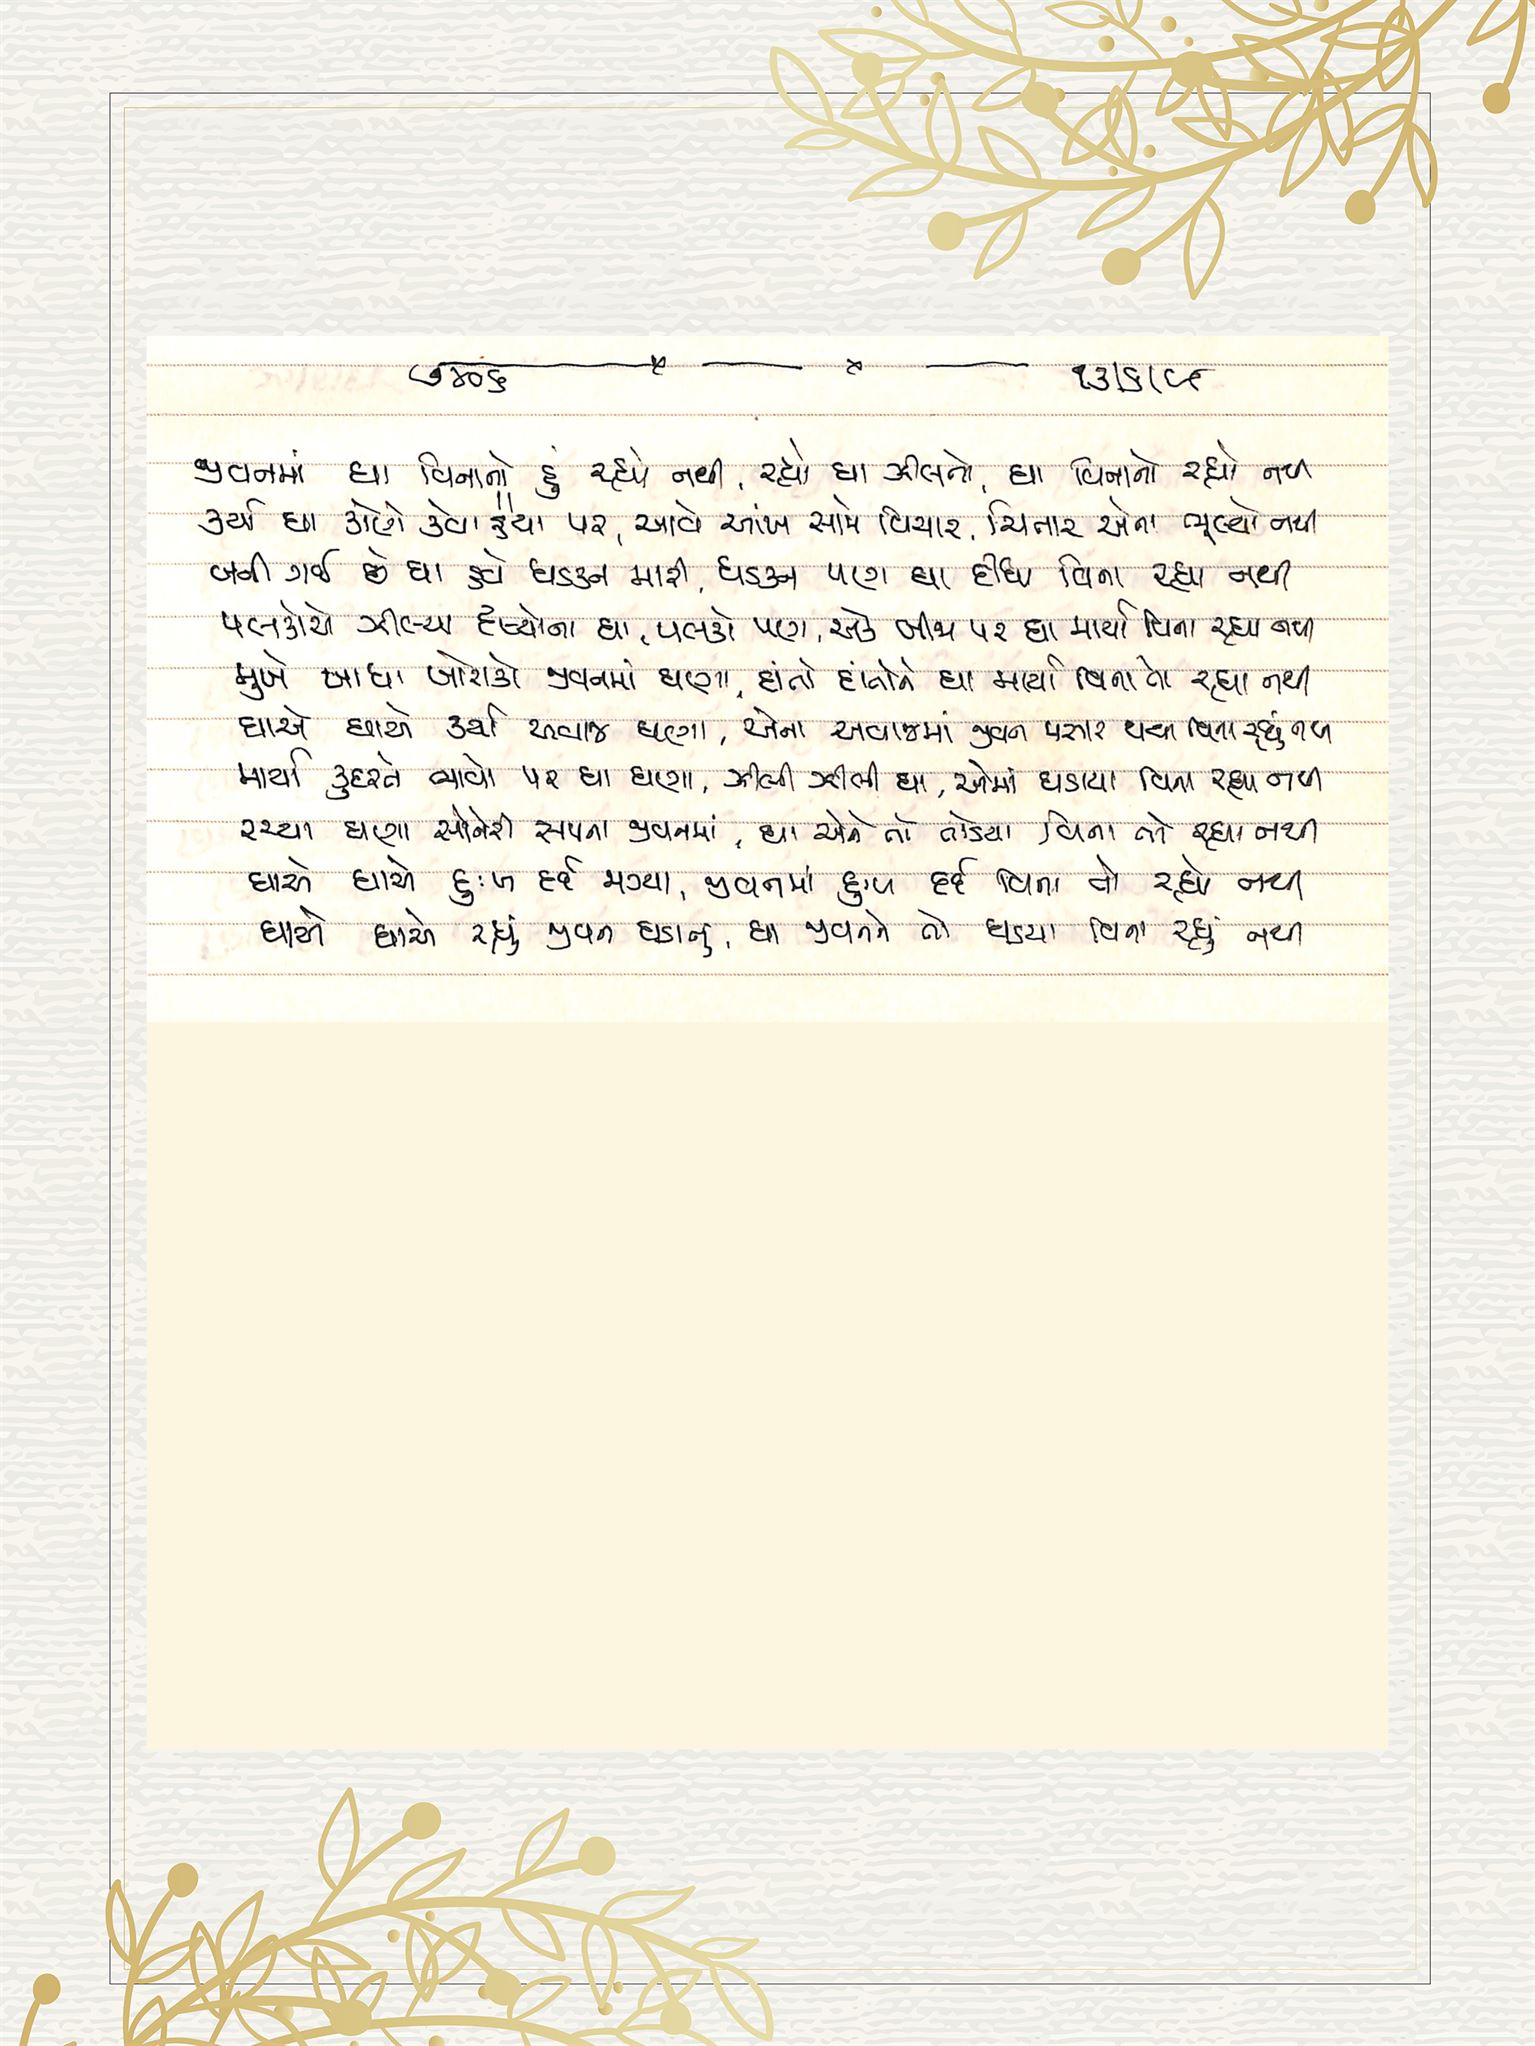 ૭૪૦૬ ૧૩/૬/૯૮
જીવનમાં ઘા વિનાનો હું રહ્યો નથી, રહ્યો ઘા ઝીલતો, ઘા વિનાનો રહ્યો નથી
કર્યા ઘા કોણે કેવા ક્યા પર, આવે આંખ સામે વિચાર, ચિતાર એના ભૂલ્યો નથી
બની ગઈ છે ઘા હવે ધડકન મારી, ધડકન પણ ઘા દીધા વિના રહ્યા નથી
પલકોએ ઝીલ્યા દૃશ્યોના ઘા, પલકો પણ, એક બીજા પર ઘા માર્યા વિના રહ્યા નથી
મુખે ખાધા ખોરાકો જીવનમાં ઘણા, દાંતો દાંતોને ઘા માર્યા વિના તો રહ્યા નથી
ઘાએ ઘાએ કર્યા અવાજ ઘણા, એના અવાજમાં જીવન પસાર થયા વિના રહ્યું નથી
માર્યા કુદરતે ભાવો પર ઘા ઘણા, ઝીલી ઝીલી ઘા, એમાં ઘડાયા વિના રહ્યા નથી
રચ્યા ઘણા સોનેરી સપના જીવનમાં, ઘા એને તો તોડયા વિના તો રહ્યા નથી
ઘાએ ઘાએ દુઃખ દર્દ મળ્યા, જીવનમાં દુઃખ દર્દ વિના તો રહ્યો નથી
ઘાએ ઘાએ રહ્યું જીવન ઘડાતું, ઘા જીવનને તો ઘડયા વિના રહ્યું નથી